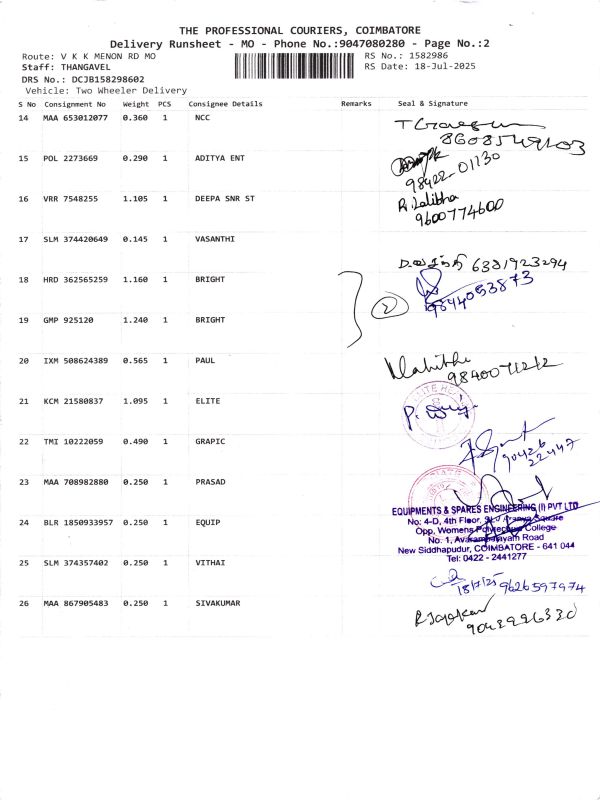 THE PROFESSIONAL COURIERS, COIMBATORE
Delivery Runsheet - MO - Phone No.:9047080280 - Page No.:2
Route: V K K MENON RD MO RS No.: 1582986
Staff: THANGAVEL RS Date: 18-Jul-2025
DRS No.: DCJB158298602
Vehicle: Two Wheeler Delivery
S No Consignment No Weight PCS Consignee Details Remarks Seal & Signature
14 MAA 653012077 0.360 1 NCC
15 POL 2273669 0.290 1 ADITYA ENT
98422-01130
16 VRR 7548255 1.105 1 DEEPA SNR ST R. Lalitha
9600774600
17 SLM 374420649 0.145 1 VASANTHI
6381923294
18 HRD 362565259 1.160 1 BRIGHT
2 9844053873
19 GMP 925120 1.240 1 BRIGHT
20 IXM 508624389 0.565 1 PAUL
21 KCM 21580837 1.095 1 ELITE
22 TMI 10222059 0.490 1 GRAPIC
90426
22447
23 MAA 708982880 0.250 1 PRASAD
24 BLR 1850933957 0.250 1 EQUIP
EQUIPMENTS & SPARES ENGINEERING (I) PVT LTD
No: 4-D, 4th Floor, Square
Opp, Womens Polytechnic College
No. 1, Avarampalayam Road
New Siddhapudur, COIMBATORE - 641 044
Tel: 0422 - 2441277
25 SLM 374357402 0.250 1 VITHAI
18/7/25 9626597974
26 MAA 867905483 0.250 1 SIVAKUMAR